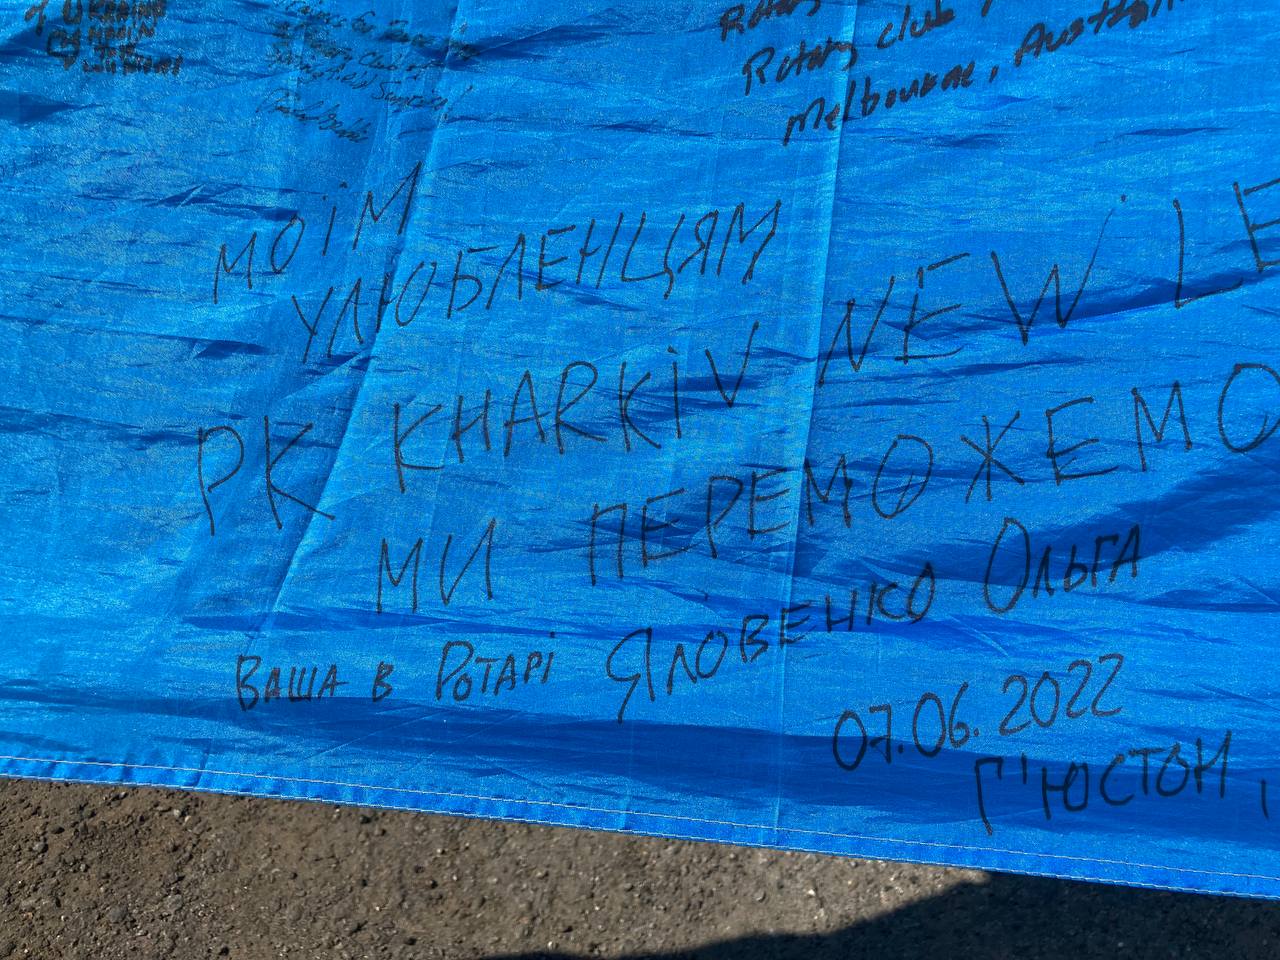 UKRAINE
Rotary
Rotary club
Melbourne, Austral
МОЇМ
УЛЮБЛЕНЦЯМ
РК KHARKIV NEW LE
МИ ПЕРЕМОЖЕМО
ВАША В РОТАРІ ЯЛОВЕНКО ОЛЬГА
07.06.2022
Г'ЮСТОН,